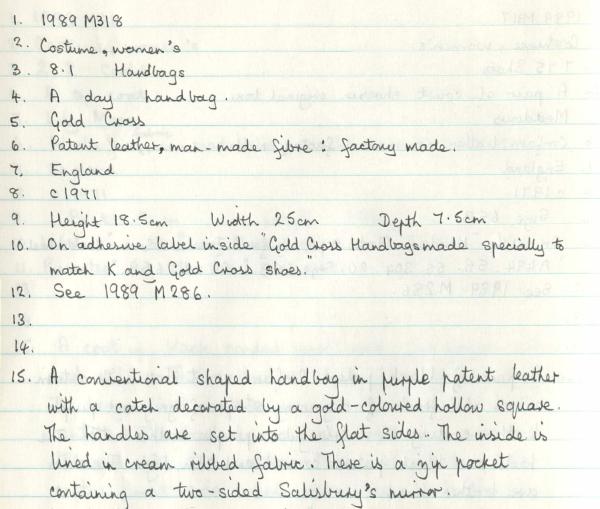 1. 1989 M318
2. Costume, women's
3. 8.1 Handbags
4. A day handbag.
5. Gold Cross
6. Patent leather, man-made fibre : factory made.
7. England
8. c1971
9. Height 18.5cm Width 25cm Depth 7.5cm
10. On adhesive label inside "Gold Cross Handbags made specially to
match K and Gold Cross shoes."
12. See 1989 M286.
13.
14.
15. A conventional shaped handbag in purple patent leather
with a catch decorated by a gold-coloured hollow square.
The handles are set into the flat sides. The inside is
lined in cream ribbed fabric. There is a zip pocket
containing a two-sided Salisbury's mirror.